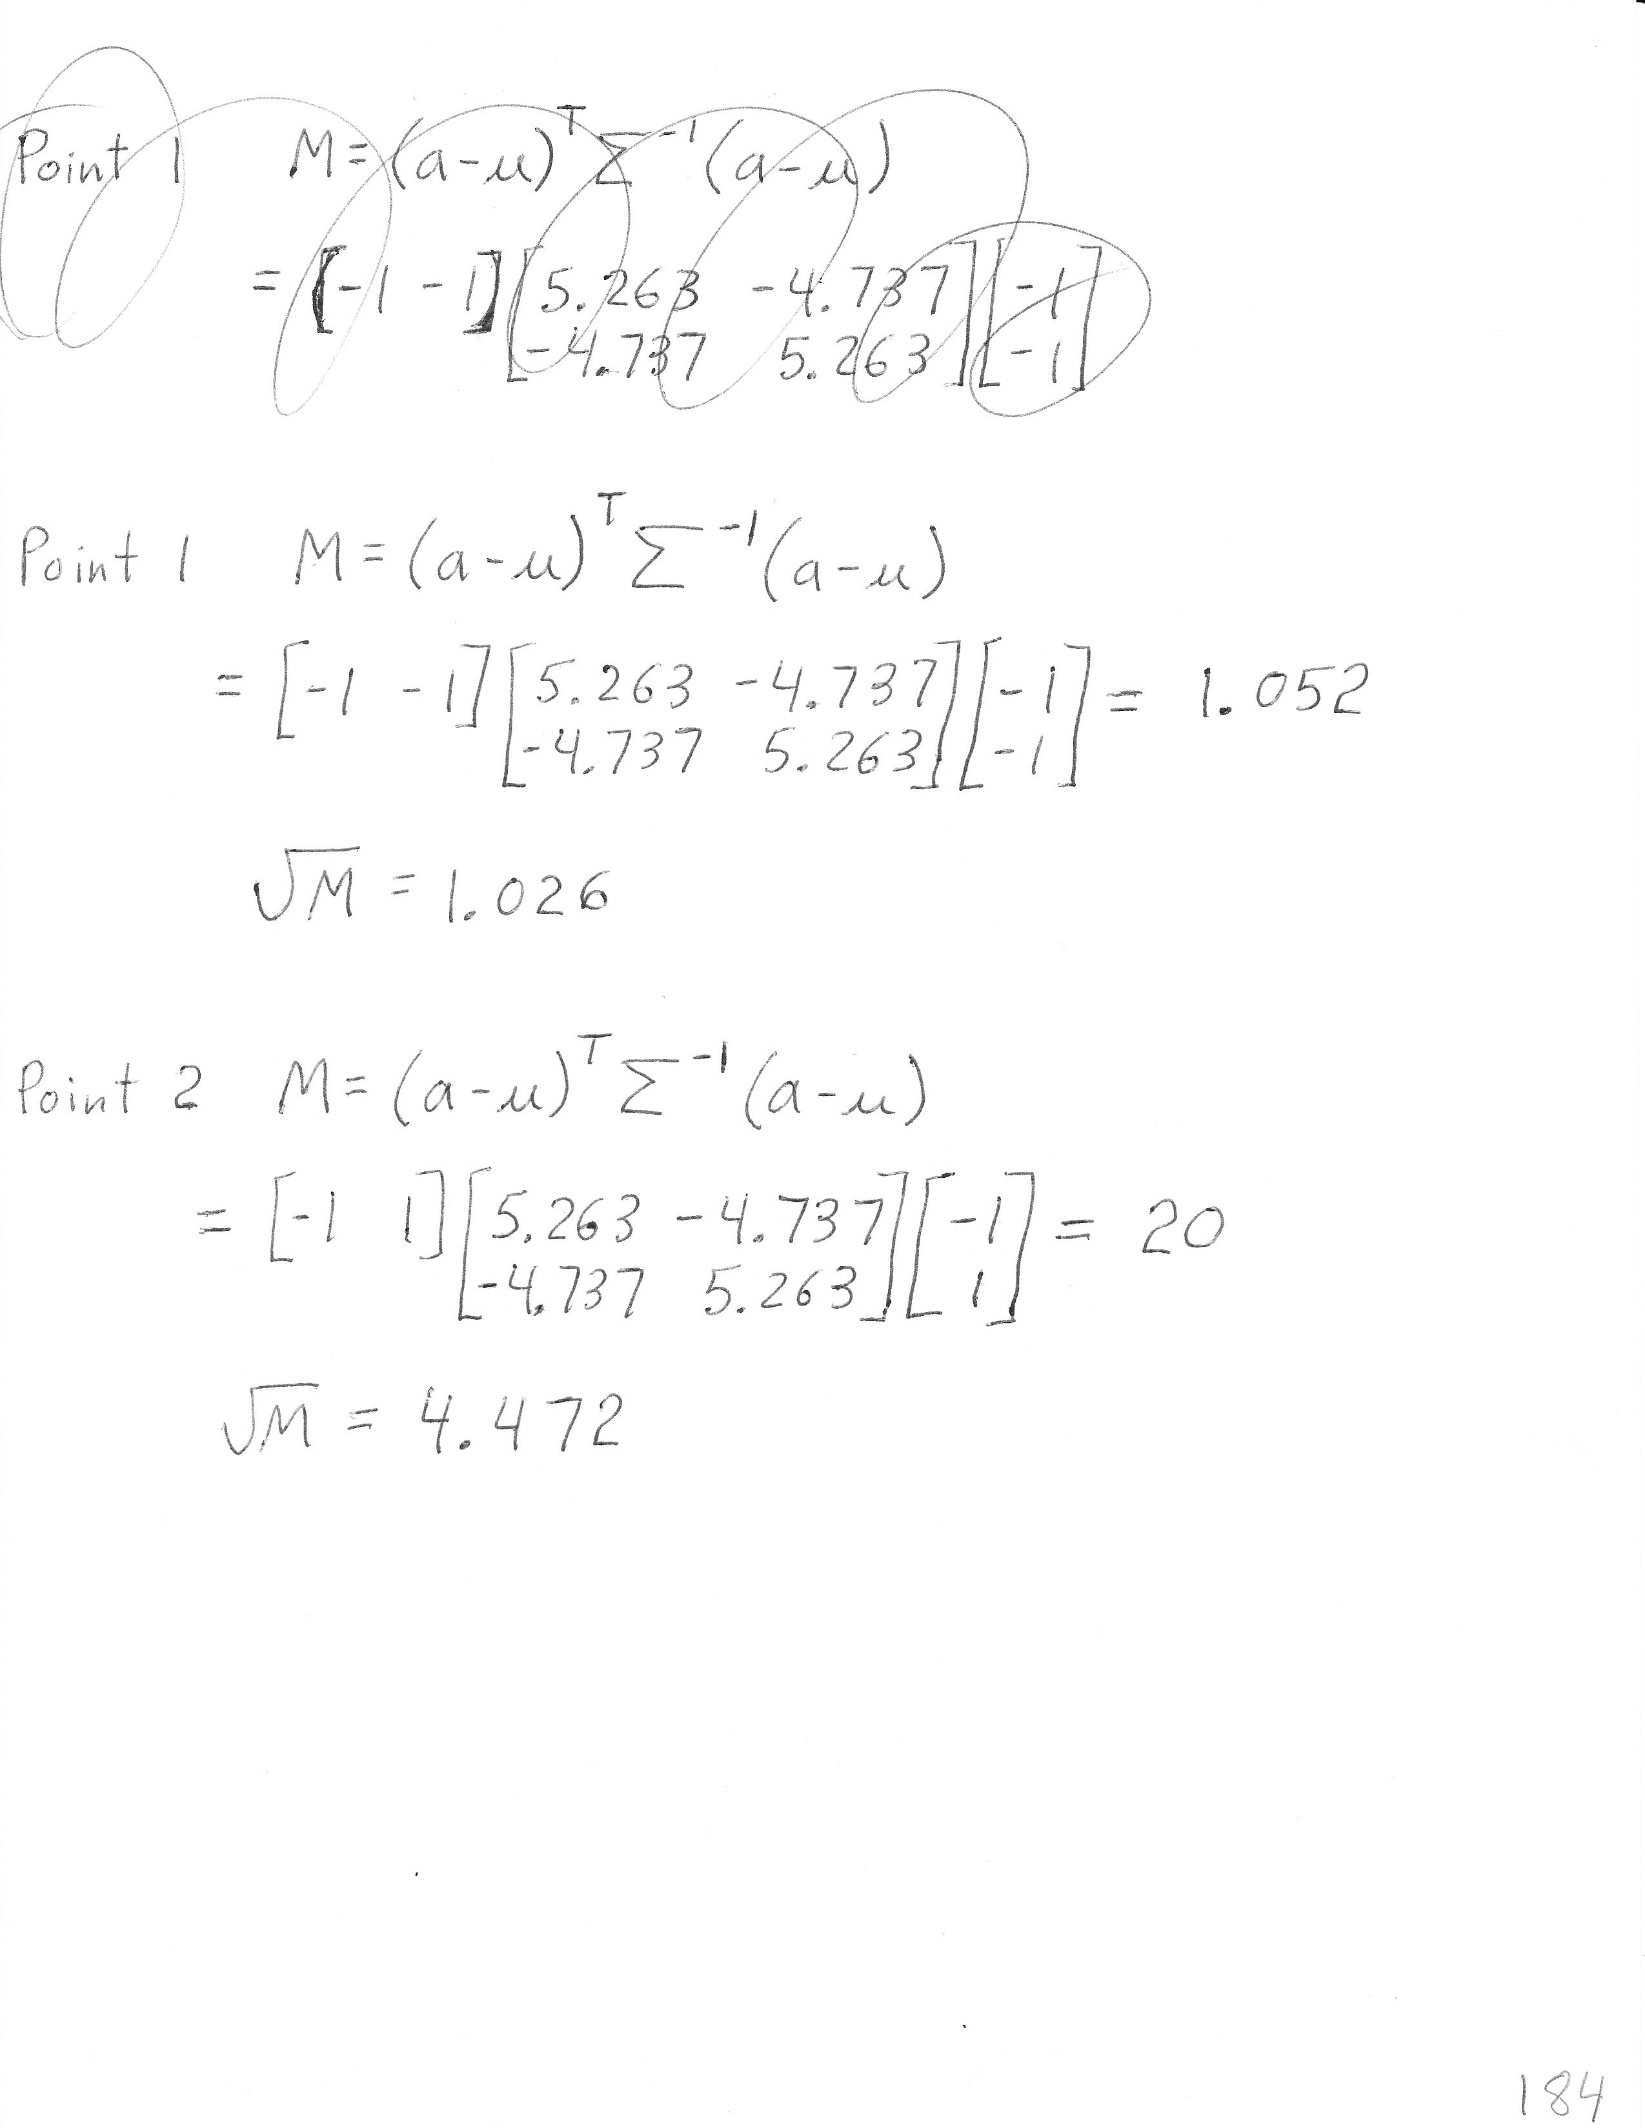 Point 1 M = (a-μ)ᵀ Σ⁻¹ (a-μ)
= [-1 -1] [5.263 -4.737] [-1]
-4.737 5.263 -1
Point 1 M = (a-μ)ᵀ Σ⁻¹ (a-μ)
= [-1 -1] [5.263 -4.737] [-1] = 1.052
-4.737 5.263 -1
√M = 1.026
Point 2 M = (a-μ)ᵀ Σ⁻¹ (a-μ)
= [-1 1] [5.263 -4.737] [-1] = 20
-4.737 5.263 1
√M = 4.472
184